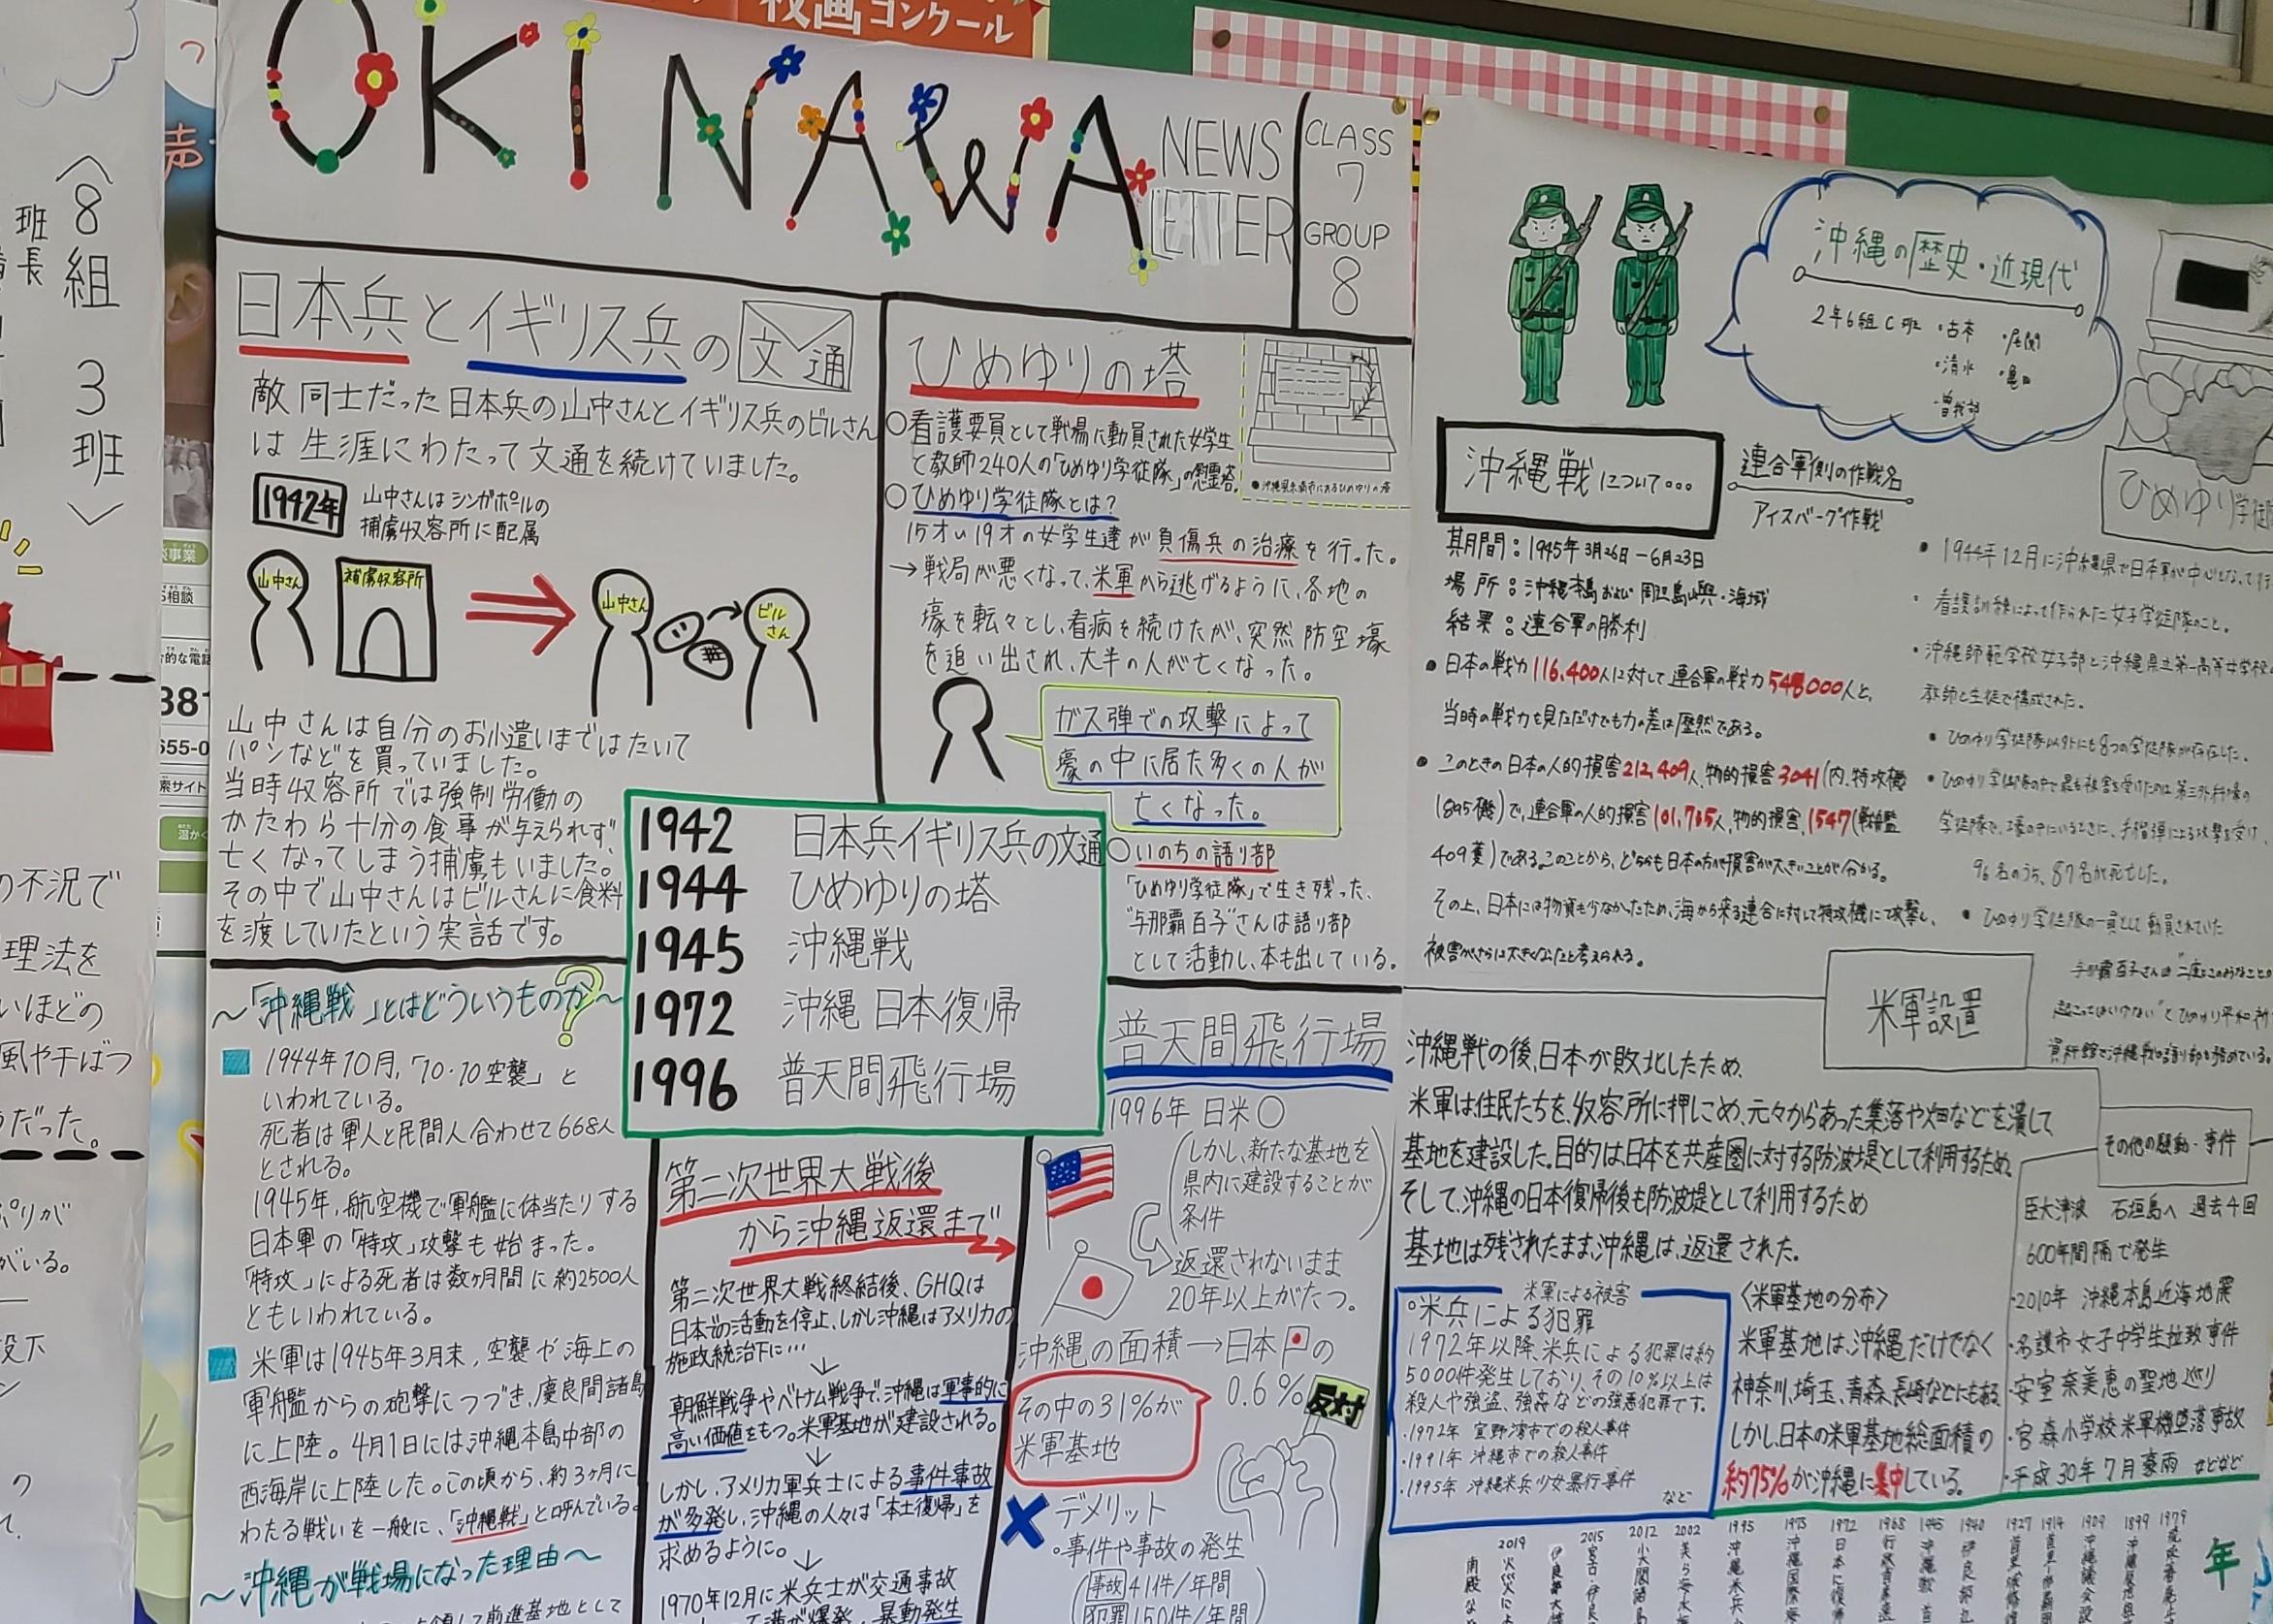 校画コンクール
〈8組 3班〉
班長
の不況で
理法を
いほどの
風や干ばつ
だった。
がいる。
事業
相談
的な電話
381
655-0
索サイト
OKINAWA
NEWS
LETTER
CLASS
7
GROUP
8
日本兵とイギリス兵の文通
敵同士だった日本兵の山中さんとイギリス兵のビルさん
は生涯にわたって文通を続けていました。
1942年
山中さんはシンガポールの
捕虜収容所に配属
山中さん
捕虜収容所
山中さん
ビル
さん
山中さんは自分のお小遣いまではたいて
パンなどを買っていました。
当時収容所では強制労働の
かたわら十分の食事が与えられず、
亡くなってしまう捕虜もいました。
その中で山中さんはビルさんに食料
を渡していたという実話です。
ひめゆりの塔
○看護要員として戦場に動員された女学生
と教師240人の「ひめゆり学徒隊」の慰霊塔。
●沖縄県糸満市にあるひめゆりの塔
○ひめゆり学徒隊とは?
15才~19才の女学生達が負傷兵の治療を行った。
→戦局が悪くなって、米軍から逃げるように、各地の
壕を転々とし、看病を続けたが、突然防空壕
を追い出され、大半の人が亡くなった。
ガス弾での攻撃によって
壕の中に居た多くの人が
亡くなった。
○いのちの語り部
「ひめゆり学徒隊」で生き残った、
"与那覇百子"さんは語り部
として活動し、本も出している。
1942 日本兵イギリス兵の文通
1944 ひめゆりの塔
1945 沖縄戦
1972 沖縄 日本復帰
1996 普天間飛行場
~「沖縄戦」とはどういうものか~?
1944年10月,「10・10空襲」と
いわれている。
死者は軍人と民間人合わせて668人
とされる。
1945年,航空機で軍艦に体当たりする
日本軍の「特攻」攻撃も始まった。
「特攻」による死者は数ヶ月間に約2500人
ともいわれている。
米軍は1945年3月末,空襲や海上の
軍艦からの砲撃につづき、慶良間諸島
に上陸。4月1日には沖縄本島中部の
西海岸に上陸した。この頃から、約3ヶ月に
わたる戦いを一般に、「沖縄戦」と呼んでいる。
~沖縄が戦場になった理由~
前進基地として
第二次世界大戦後
から沖縄返還まで
第二次世界大戦終結後、GHQは
日本での活動を停止、しかし沖縄はアメリカの
施政統治下に…
↓
朝鮮戦争やベトナム戦争で、沖縄は軍事的に
高い価値をもつ。米軍基地が建設される。
↓
しかし、アメリカ軍兵士による事件事故
が多発し、沖縄の人々は「本土復帰」を
求めるように。
↓
1970年12月に米兵士が交通事故
暴動発生
普天間飛行場
1996年 日米○
(しかし、新たな基地を
県内に建設することが
条件)
返還されないまま
20年以上がたつ。
沖縄の面積→日本の
0.6%
その中の31%が
米軍基地
反対
✕デメリット
○事件や事故の発生
(事故 41件/年間
犯罪 150件/年間)
沖縄の歴史・近現代
2年6組C班 ・古本
・清水 ・亀田
・曽我部
沖縄戦について…
連合軍側の作戦名
アイスバーグ作戦
期間:1945年3月26日-6月23日
場所:沖縄本島および周辺島嶼・海域
結果:連合軍の勝利
●日本の戦力116,400人に対して連合軍の戦力548000人と、
当時の戦力を見ただけでも力の差は歴然である。
●このときの日本の人的損害212,409人、物的損害3041(内、特攻機
1895機)で、連合軍の人的損害101,705人、物的損害,1547(戦艦
409隻)である。このことから、どちらも日本の方が損害が大きいことが分かる。
その上、日本には物資も少なかったため、海から来る連合に対して特攻機にて攻撃し、
被害がさらに大きくなったと考えられる。
ひめゆり学徒隊
・1944年12月に沖縄県で日本軍が中心となって行
・看護訓練によって作られた女子学徒隊のこと。
・沖縄師範学校女子部と沖縄県立第一高等女学校の
教師と生徒で構成された。
・ひめゆり学徒隊以外にも8つの学徒隊が存在した。
・ひめゆり学徒隊の中で最も被害を受けたのは第三外科壕の
学徒隊で、壕の中にいるときに、手榴弾による攻撃を受け、
96名のうち、87名が死亡した。
・ひめゆり学徒隊の一員として動員されていた
与那覇百子さんは"二度とこのようなことが
起こってはいけない"とひめゆり平和祈
資料館で沖縄戦の語り部を務めている。
米軍設置
沖縄戦の後、日本が敗北したため、
米軍は住民たちを、収容所に押しこめ、元々からあった集落や畑などを潰して、
基地を建設した。目的は日本を共産圏に対する防波堤として利用するため。
そして、沖縄の日本復帰後も防波堤として利用するため
基地は残されたまま、沖縄は、返還された。
米軍による被害
○米兵による犯罪
1972年以降、米兵による犯罪は約
5000件発生しており、その10%以上は
殺人や強盗、強姦などの強悪犯罪です。
・1972年 宜野湾市での殺人事件
・1991年 沖縄市での殺人事件
・1995年 沖縄米兵少女暴行事件
など
〈米軍基地の分布〉
米軍基地は、沖縄だけでなく
神奈川、埼玉、青森、長崎などにもある。
しかし、日本の米軍基地総面積の
約75%が沖縄に集中している。
その他の騒動・事件
巨大津波 石垣島へ 過去4回
600年間隔で発生
・2010年 沖縄本島近海地震
・名護市女子中学生拉致事件
・安室奈美恵の聖地巡り
・宮森小学校米軍機墜落事故
・平成30年7月豪雨 などなど
2019
2015
2012
2002
1995
1973
1972
1968
1945
1940
1927
1914
1909
1899
1979
年